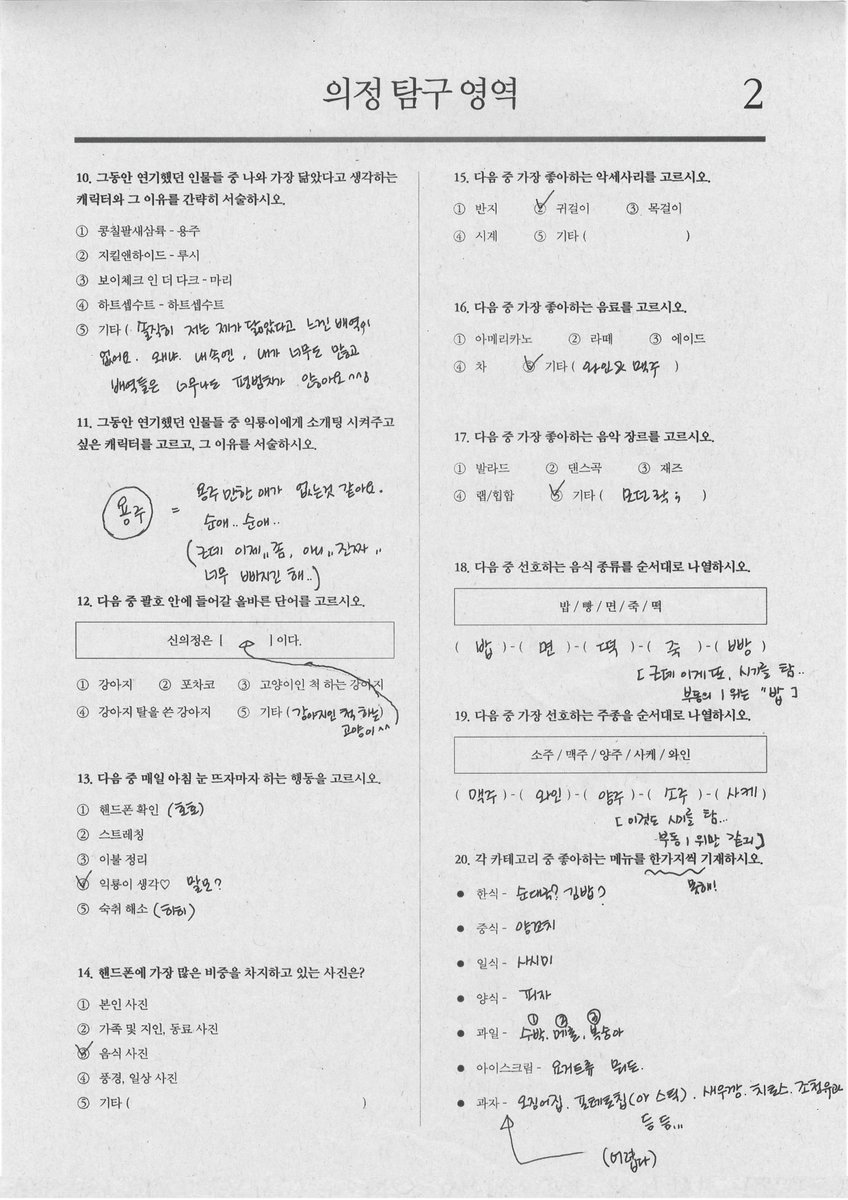 의정 탐구 영역
2
10. 그동안 연기했던 인물들 중 나와 가장 닮았다고 생각하는
캐릭터와 그 이유를 간략히 서술하시오.
① 콩칠팔새삼륙 - 용주
② 지킬앤하이드 - 루시
③ 보이체크 인 더 다크 - 마리
④ 하트셉수트 - 하트셉수트
⑤ 기타 ( 솔직히 저는 제가 닮았다고 느낀 배역이
없어요. 왜냐, 내 속엔, 내가 너무도 많고
배역들은 너무나도 평범치가 않아요^^;
11. 그동안 연기했던 인물들 중 익룡이에게 소개팅 시켜주고
싶은 캐릭터를 고르고, 그 이유를 서술하시오.
용주 = 용주만한 애가 없는것 같아요.
순애.. 순애..
(근데 이제,, 좀, 아니,, 진짜,,
너무 빠지긴 해..)
12. 다음 중 괄호 안에 들어갈 올바른 단어를 고르시오.
신의정은 [ ]이다.
① 강아지 ② 포차코 ③ 고양이인 척 하는 강아지
④ 강아지 탈을 쓴 강아지 ⑤ 기타 (강아지인 척 하는
고양이^^
13. 다음 중 매일 아침 눈 뜨자마자 하는 행동을 고르시오.
① 핸드폰 확인 (호호)
② 스트레칭
③ 이불 정리
④ 익룡이 생각♡ 말모?
⑤ 숙취 해소 (하히)
14. 핸드폰에 가장 많은 비중을 차지하고 있는 사진은?
① 본인 사진
② 가족 및 지인, 동료 사진
③ 음식 사진
④ 풍경, 일상 사진
⑤ 기타 ( )
15. 다음 중 가장 좋아하는 악세사리를 고르시오.
① 반지 ② 귀걸이 ③ 목걸이
④ 시계 ⑤ 기타 ( )
16. 다음 중 가장 좋아하는 음료를 고르시오.
① 아메리카노 ② 라떼 ③ 에이드
④ 차 ⑤ 기타 ( 와인& 맥주 )
17. 다음 중 가장 좋아하는 음악 장르를 고르시오.
① 발라드 ② 댄스곡 ③ 재즈
④ 랩/힙합 ⑤ 기타 ( 모던락; )
18. 다음 중 선호하는 음식 종류를 순서대로 나열하시오.
밥 / 빵 / 면 / 죽 / 떡
( 밥 ) - ( 면 ) - ( 떡 ) - ( 죽 ) - ( 빵 )
[ 근데 이게 또, 시기를 탐..
부동의 1위는 "밥 ]
19. 다음 중 가장 선호하는 주종을 순서대로 나열하시오.
소주 / 맥주 / 양주 / 사케 / 와인
( 맥주 ) - ( 와인 ) - ( 양주 ) - ( 소주 ) - ( 사케 )
[ 이것도 시기를 탐...
부동 1위만 같지]
20. 각 카테고리 중 좋아하는 메뉴를 한가지씩 기재하시오.
못해!
● 한식 - 순대국? 김밥?
● 중식 - 양꼬치
● 일식 - 사시미
● 양식 - 피자
① ② ③
● 과일 - 수박, 메론, 복숭아
● 아이스크림 - 요거트류 뭐든.
● 과자 - 오징어집. 포테토칩(아 스틱). 새우깡. 치토스. 조청유과
등 등...
(어렵다)